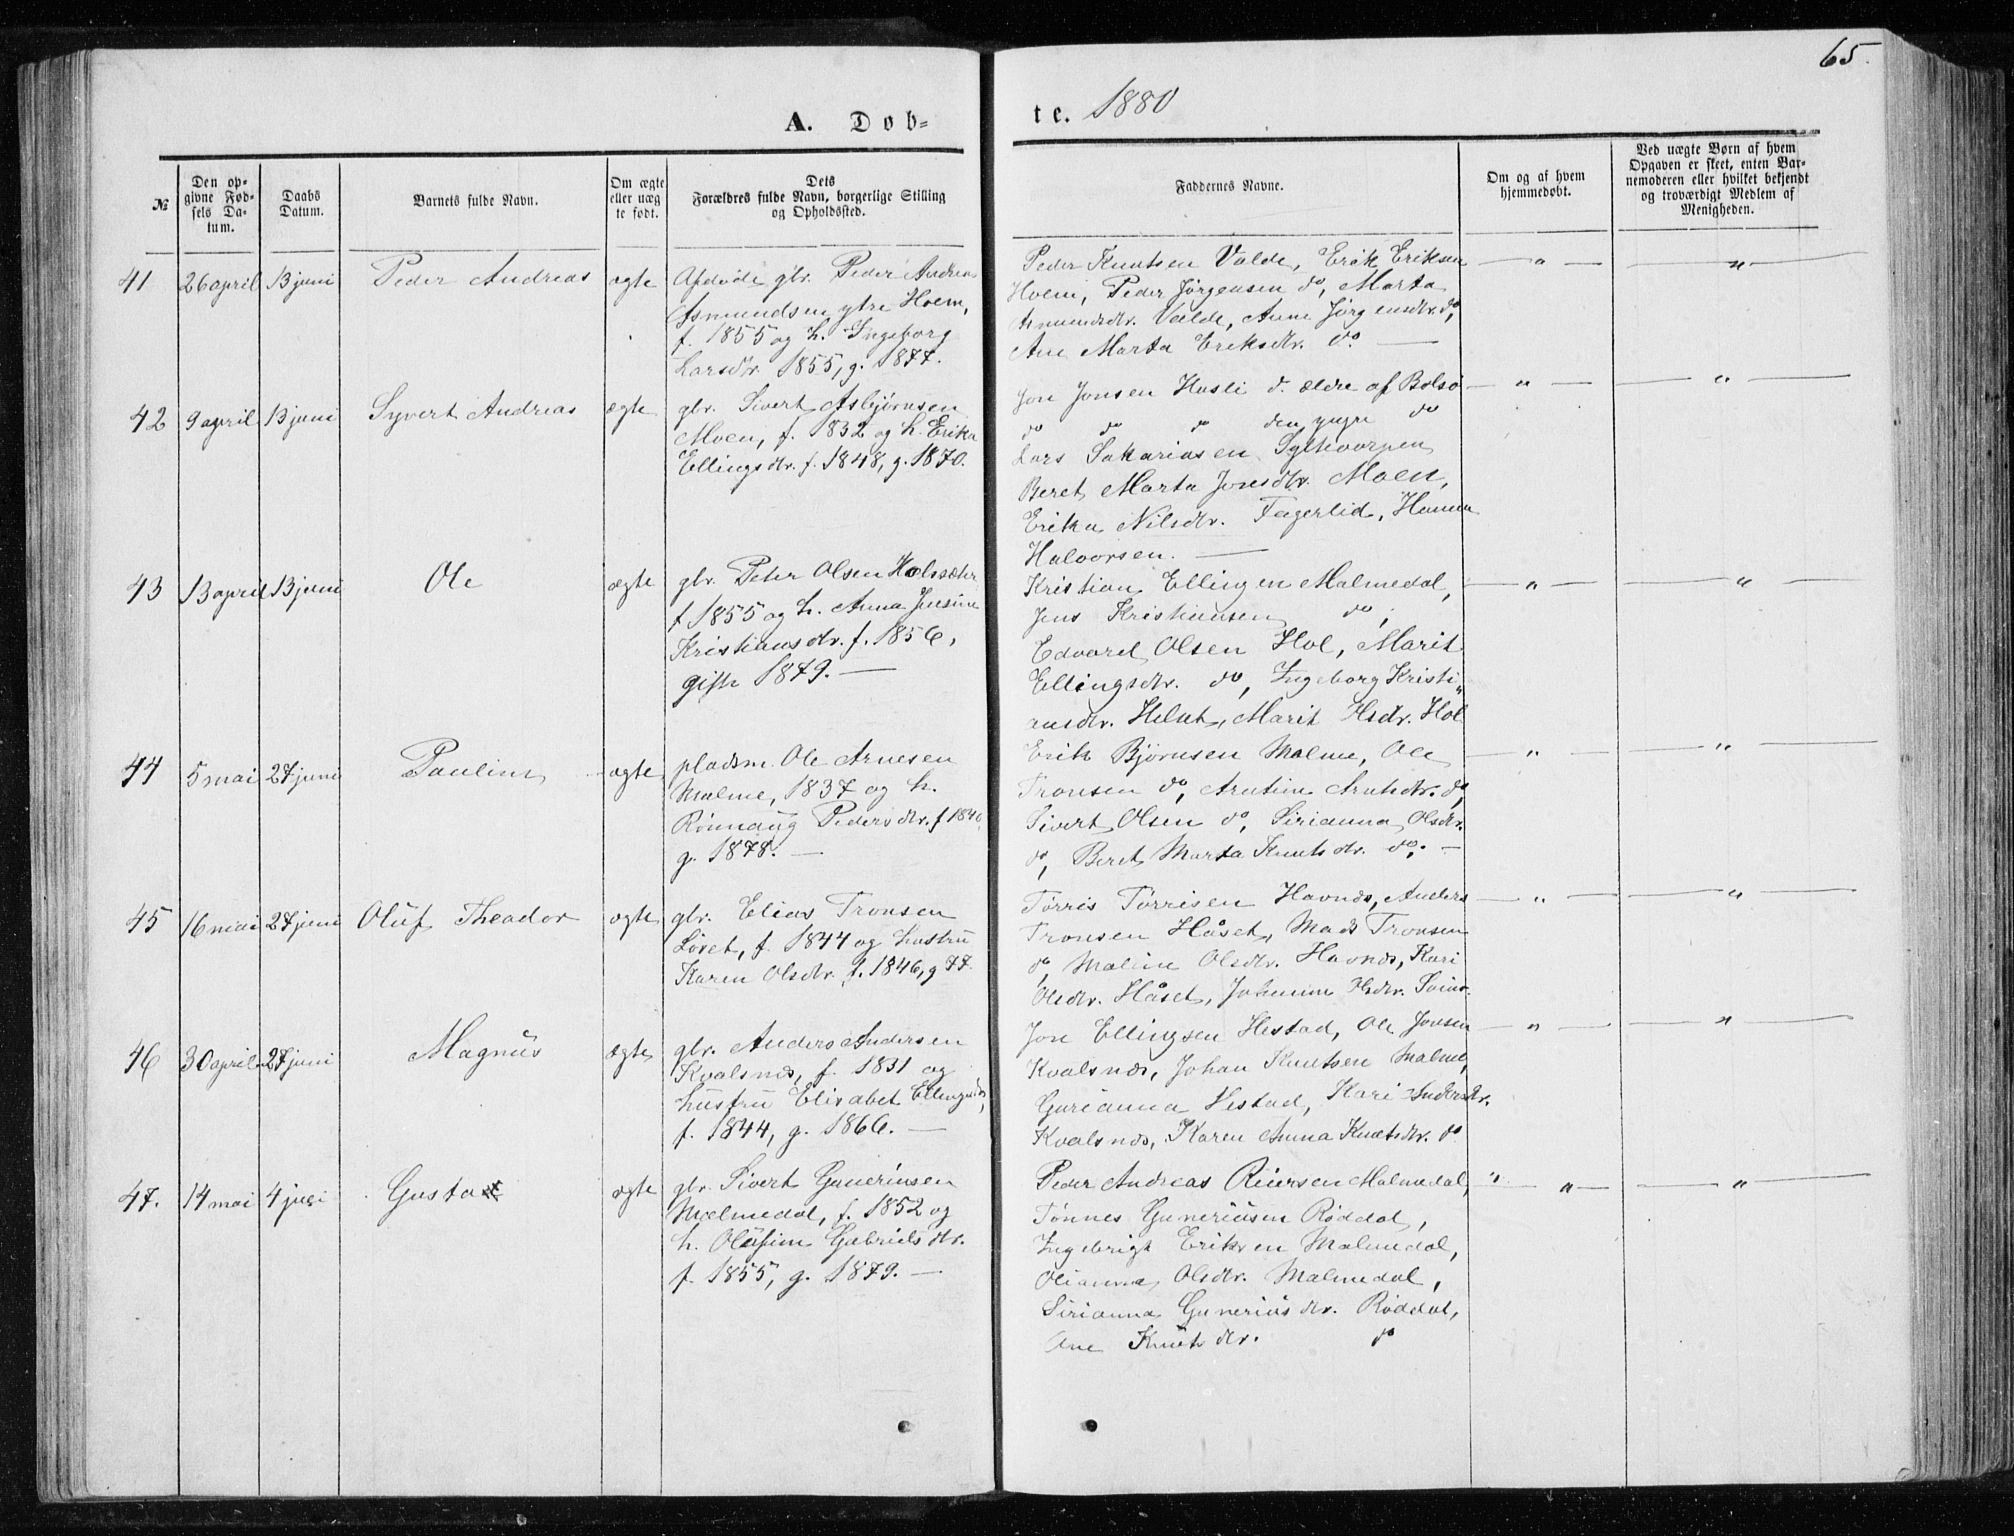 65.
A. Døb-
te. 1880
№
Den op-
givne Fød-
sels Da-
tum.
Daabs
Datum.
Barnets fulde Navn.
Om ægte
eller uæg
te født.
Dets
Forældres fulde Navn, borgerlige Stilling
og Opholdssted.
Faddernes Navne.
Om og af hvem
hjemmedøbt.
Ved uægte Børn af hvem
Opgaven er skeet, enten Bar-
nemoderen eller hvilket bekjendt
og troværdigt Medlem af
Menigheden.
41 26 april 13 juni Peder Andreas ægte
Afdøde gbr. Peder Andreas
Asmundsen ytre Hoem,
f. 1855 og h. Ingeborg
Larsdtr. 1855, g. 1877.
Peder Knutsen Valde, Erik Eriksen
Hoem, Peder Jørgensen do, Marta
Asmundsdtr. Valde, Anne Jørgensdtr. do,
Ane Marta Eriksdtr. do. —
— " — — " —
42 9 april 13 juni Syvert Andreas ægte
gbr. Sivert Asbjørnsen
Moen, f. 1832 og h. Erika
Ellingsdtr. f. 1848, g. 1870.
Jon Jonsen Husli d. ældre af Bolsø
do do do den yngre do
Lars Sakariasen Sylte
Beret Marta Jonsdtr. Moen,
Erika Nilsdtr. Fagerlid, Hanna
Halvorsen. —
— " — — " —
43 13 april 13 juni Ole ægte
gbr. Peter Olsen Holssæter
f 1855 og h. Anna Jensine
Kristiansdtr. f. 1856,
gift 1879. —
Kristian Ellingsen Malmedal,
Jens Kristiansen do,
Edvard Olsen Hol, Marit
Ellingsdtr. do, Ingeborg Kristi„
ansdtr. Marit Olsdtr. Hol
— " — — " —
44 5 mai 27 juni Pauline ægte
pladsm. Ole Arnesen
Malme, 1837 og h.
Rønnaug Pedersdtr. f 1840,
g. 1878. —
Erik Bjørnsen Malme, Ole
Tronsen do, do,
Sivert Olsen do, Sirianna Olsdtr.
do, Beret Marta Knutsdtr. do. —
— " — — " —
45 16 mai 27 juni Oluf Theodor ægte
gbr. Elias Tronsen
Løset, f. 1844 og hustru
Karen Olsdtr. f. 1846, g 77.
Tørris Tørrisen Havnås, Anders
Tronsen Håset, Mads Tronsen
do, Maline Olsdtr. Havnås, Kari
Olsdtr. Håset, Johanne Olsdtr.
— " — — " —
46 30 april 27 juni Magnus ægte
gbr. Anders Andersen
Kvalsnæs, f. 1831 og
hustru Elisabet Ellingsdtr,
f. 1844, g. 1866. —
Jon Ellingsen Hestad, Ole Jonsen
Kvalsnæs, Johan Knutsen Malme,
Gurianna Hestad, Kari Andersdtr.
Kvalsnæs, Karen Anna Knutsdtr. do
— " — — " —
47. 14 mai 4 juli Gusta ægte
gbr. Sivert Guneriusen
Malmedal, f. 1852 og
h. Olufine Gabrielsdtr.
f. 1855, g. 1879. —
Peder Andreas Reiersen Malmedal,
Tønnes Guneriusen Røddal,
Ingebrigt Eriksen Malmedal,
Olianna Olsdtr. Malmedal,
Sirianna Guneriusdtr. Røddal,
Ane Knutsdtr. do
" — " — — " —